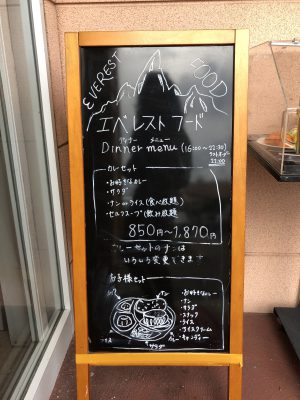 EVEREST FOOD
エベレスト フード
ディナー メニュー
Dinner menu (16:00~22:30)
ラストオーダー
22:00
カレーセット
・お好きなカレー
・サラダ
・ナンorライス(食べ放題)
・セルフスープ(飲み放題)
850円~1,870円
カレーセットのナンは
いろいろ変更できます
お子様セット
・お好きなカレー
・ナン
・サラダ
・スナック
・ライス
・アイスクリーム
・キャンディー
ナン
サラダ